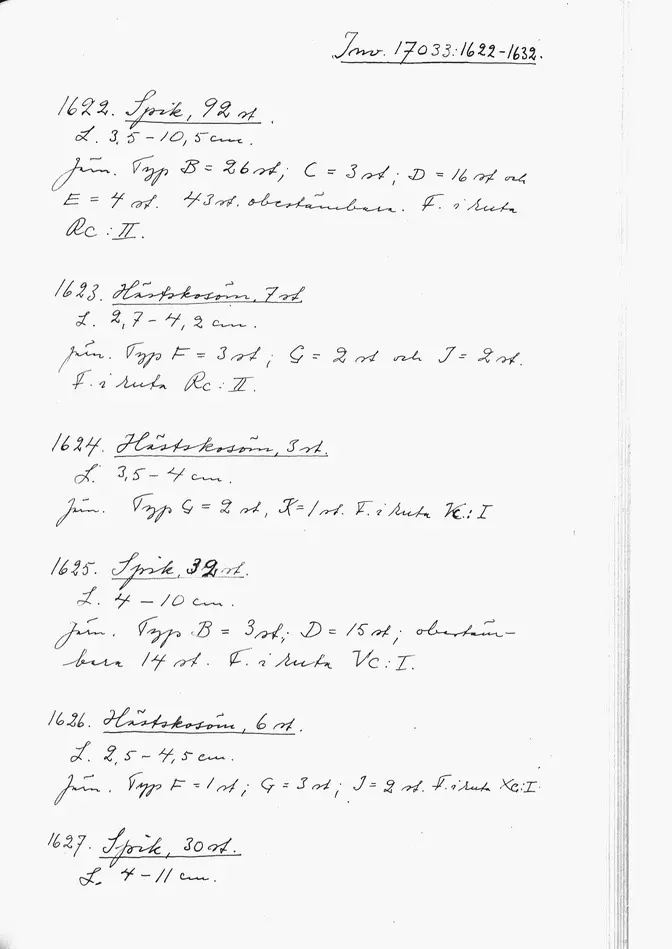 Inv. 17033:1622-1632.
1622. Spik, 92 st.
L. 3,5-10,5 cm.
Järn. Typ B = 26 st; C = 3 st; D = 16 st och
E = 4 st. 43 st. obestämbara. F. i ruta
Rc: II.
1623. Hästskosöm, 7 st.
L. 2,7-4,2 cm.
Järn. Typ F = 3 st; G = 2 st och J = 2 st.
F. i ruta Rc: II.
1624. Hästskosöm, 3 st.
L. 3,5-4 cm.
Järn. Typ G = 2 st, K = 1 st. F. i ruta Vc: I
1625. Spik, 32 st.
L. 4-10 cm.
Järn. Typ B = 3 st; D = 15 st; obestäm-
bara 14 st. F. i ruta Vc: I.
1626. Hästskosöm, 6 st.
L. 2,5-4,5 cm.
Järn. Typ F = 1 st; G = 3 st; J = 2 st. F. i ruta Xc: I
1627. Spik, 30 st.
L. 4-11 cm.